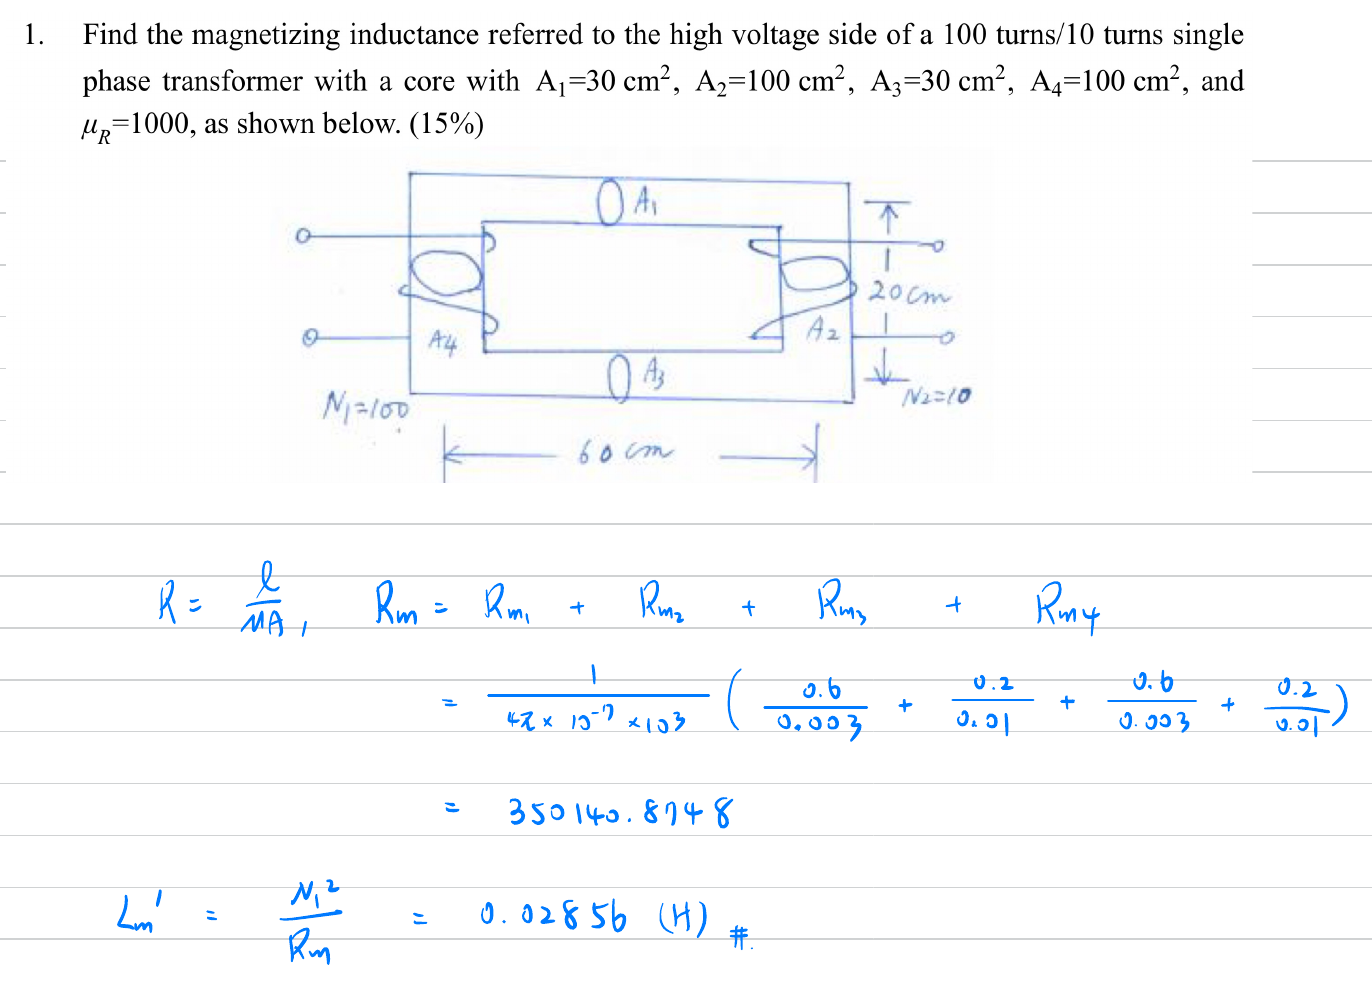 1. Find the magnetizing inductance referred to the high voltage side of a 100 turns/10 turns single
phase transformer with a core with A₁=30 cm², A₂=100 cm², A₃=30 cm², A₄=100 cm², and
μ_R=1000, as shown below. (15%)
A₁
20cm
A4
A₂
A₃
N₁=100
N₂=10
60cm
R = l/MA, Rm = Rm₁ + Rm₂ + Rm₃ + Rm4
= 1/(4π × 10⁻⁷ × 10³) (0.6/0.003 + 0.2/0.01 + 0.6/0.003 + 0.2/0.01)
= 350140.8748
Lm' = N₁²/Rm = 0.02856 (H) #.